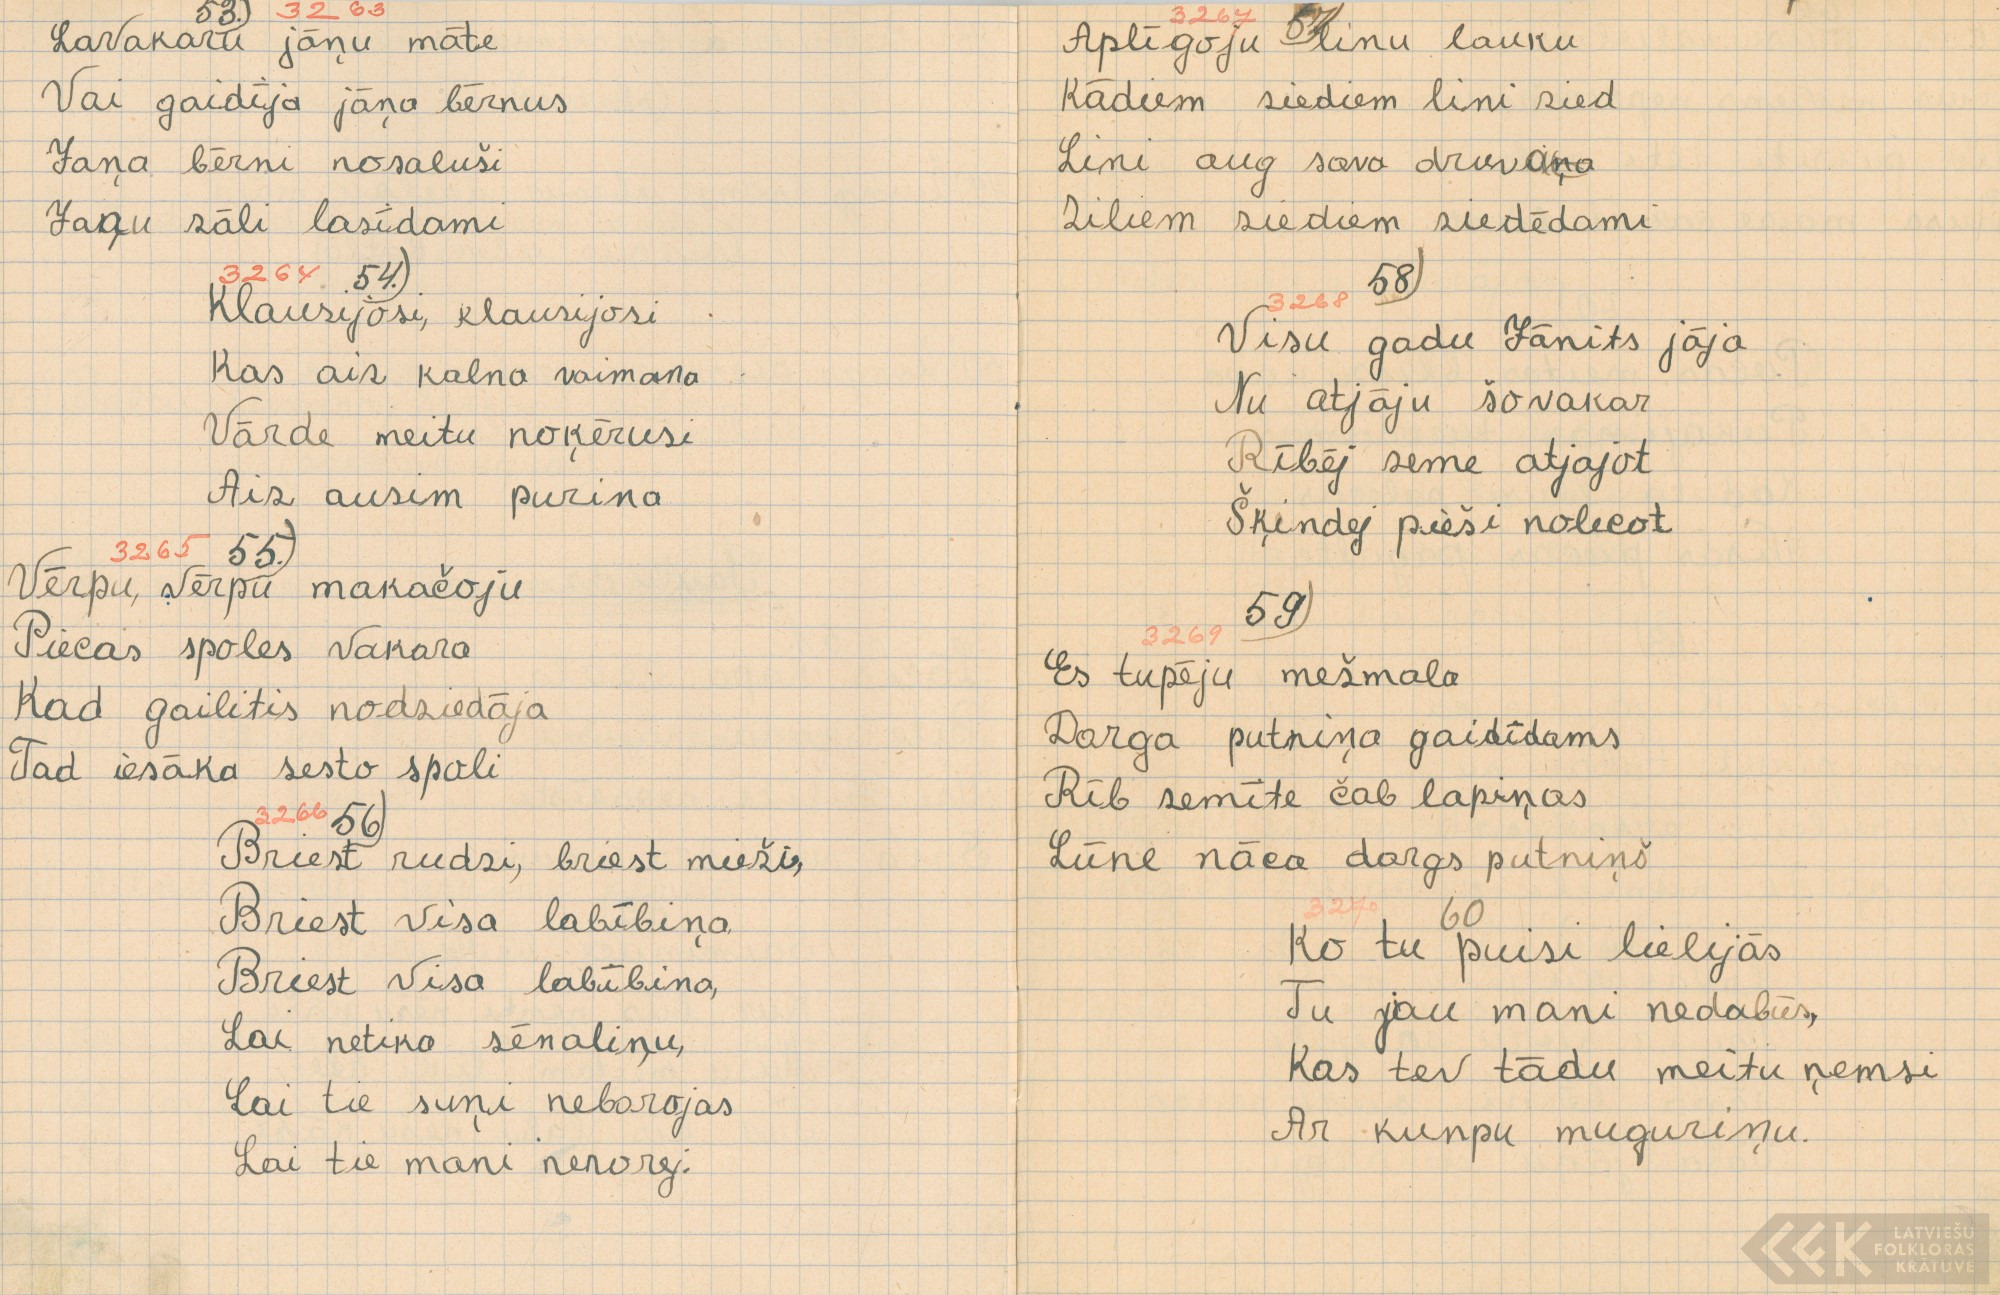 53.) 3263
Lavakaru jāņu māte
Vai gaidīja jāņa bērnus
Jaņa bērni nosaluši
Jaņu zāli lasīdami
3264 54.)
Klausijosi, klausijosi
Kas aiz kalna vaimana
Vārde meitu noķērusi
Aiz ausim purina
3265 55.)
Vērpu, vērpu makačoju
Piecas spoles vakara
Kad gailitis nodziedāja
Tad iesāka sesto spoli
3266 56)
Briest rudzi, briest mieži,
Briest visa labībiņa
Briest visa labībina,
Lai netika sēnaliņu,
Lai tie suņi nebarojas
Lai tie mani nerorej.
3267 57)
Aplīgoju linu lauku
Kādiem ziediem lini zied
Lini aug sava druvaņa
Ziliem ziediem ziedēdami
58)
3268
Visu gadu Jānits jāja
Nu atjāju šovakar
Rībēj zeme atjajot
Šķindej pieši nolecot
59)
3269
Es tupēju mežmala
Darga putniņa gaidīdams
Rīb zemīte čab lapiņas
Lūne nāca dargs putniņš
3270 60
Ko tu puisi lielijās
Tu jau mani nedabūs,
Kas tev tādu meitu ņemsi
Ar kunpu muguriņu.
LATVIEŠU
FOLKLORAS
KRĀTUVE